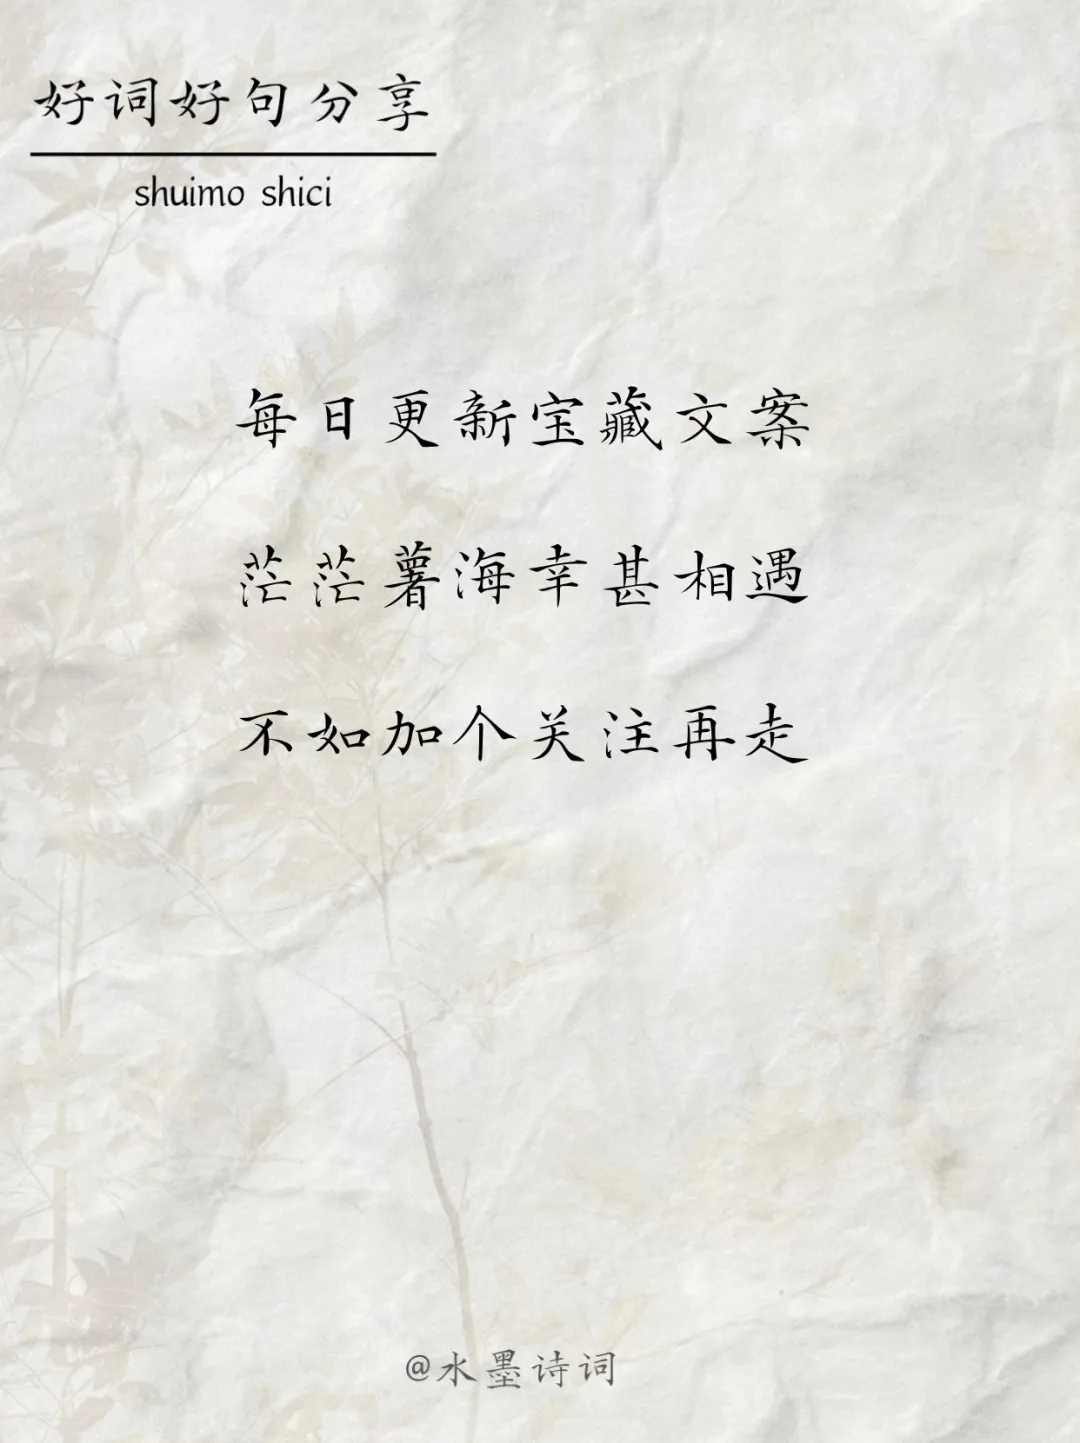 好词好句分享
shuimo shici
每日更新宝藏文案
茫茫薯海幸甚相遇
不如加个关注再走
@水墨诗词